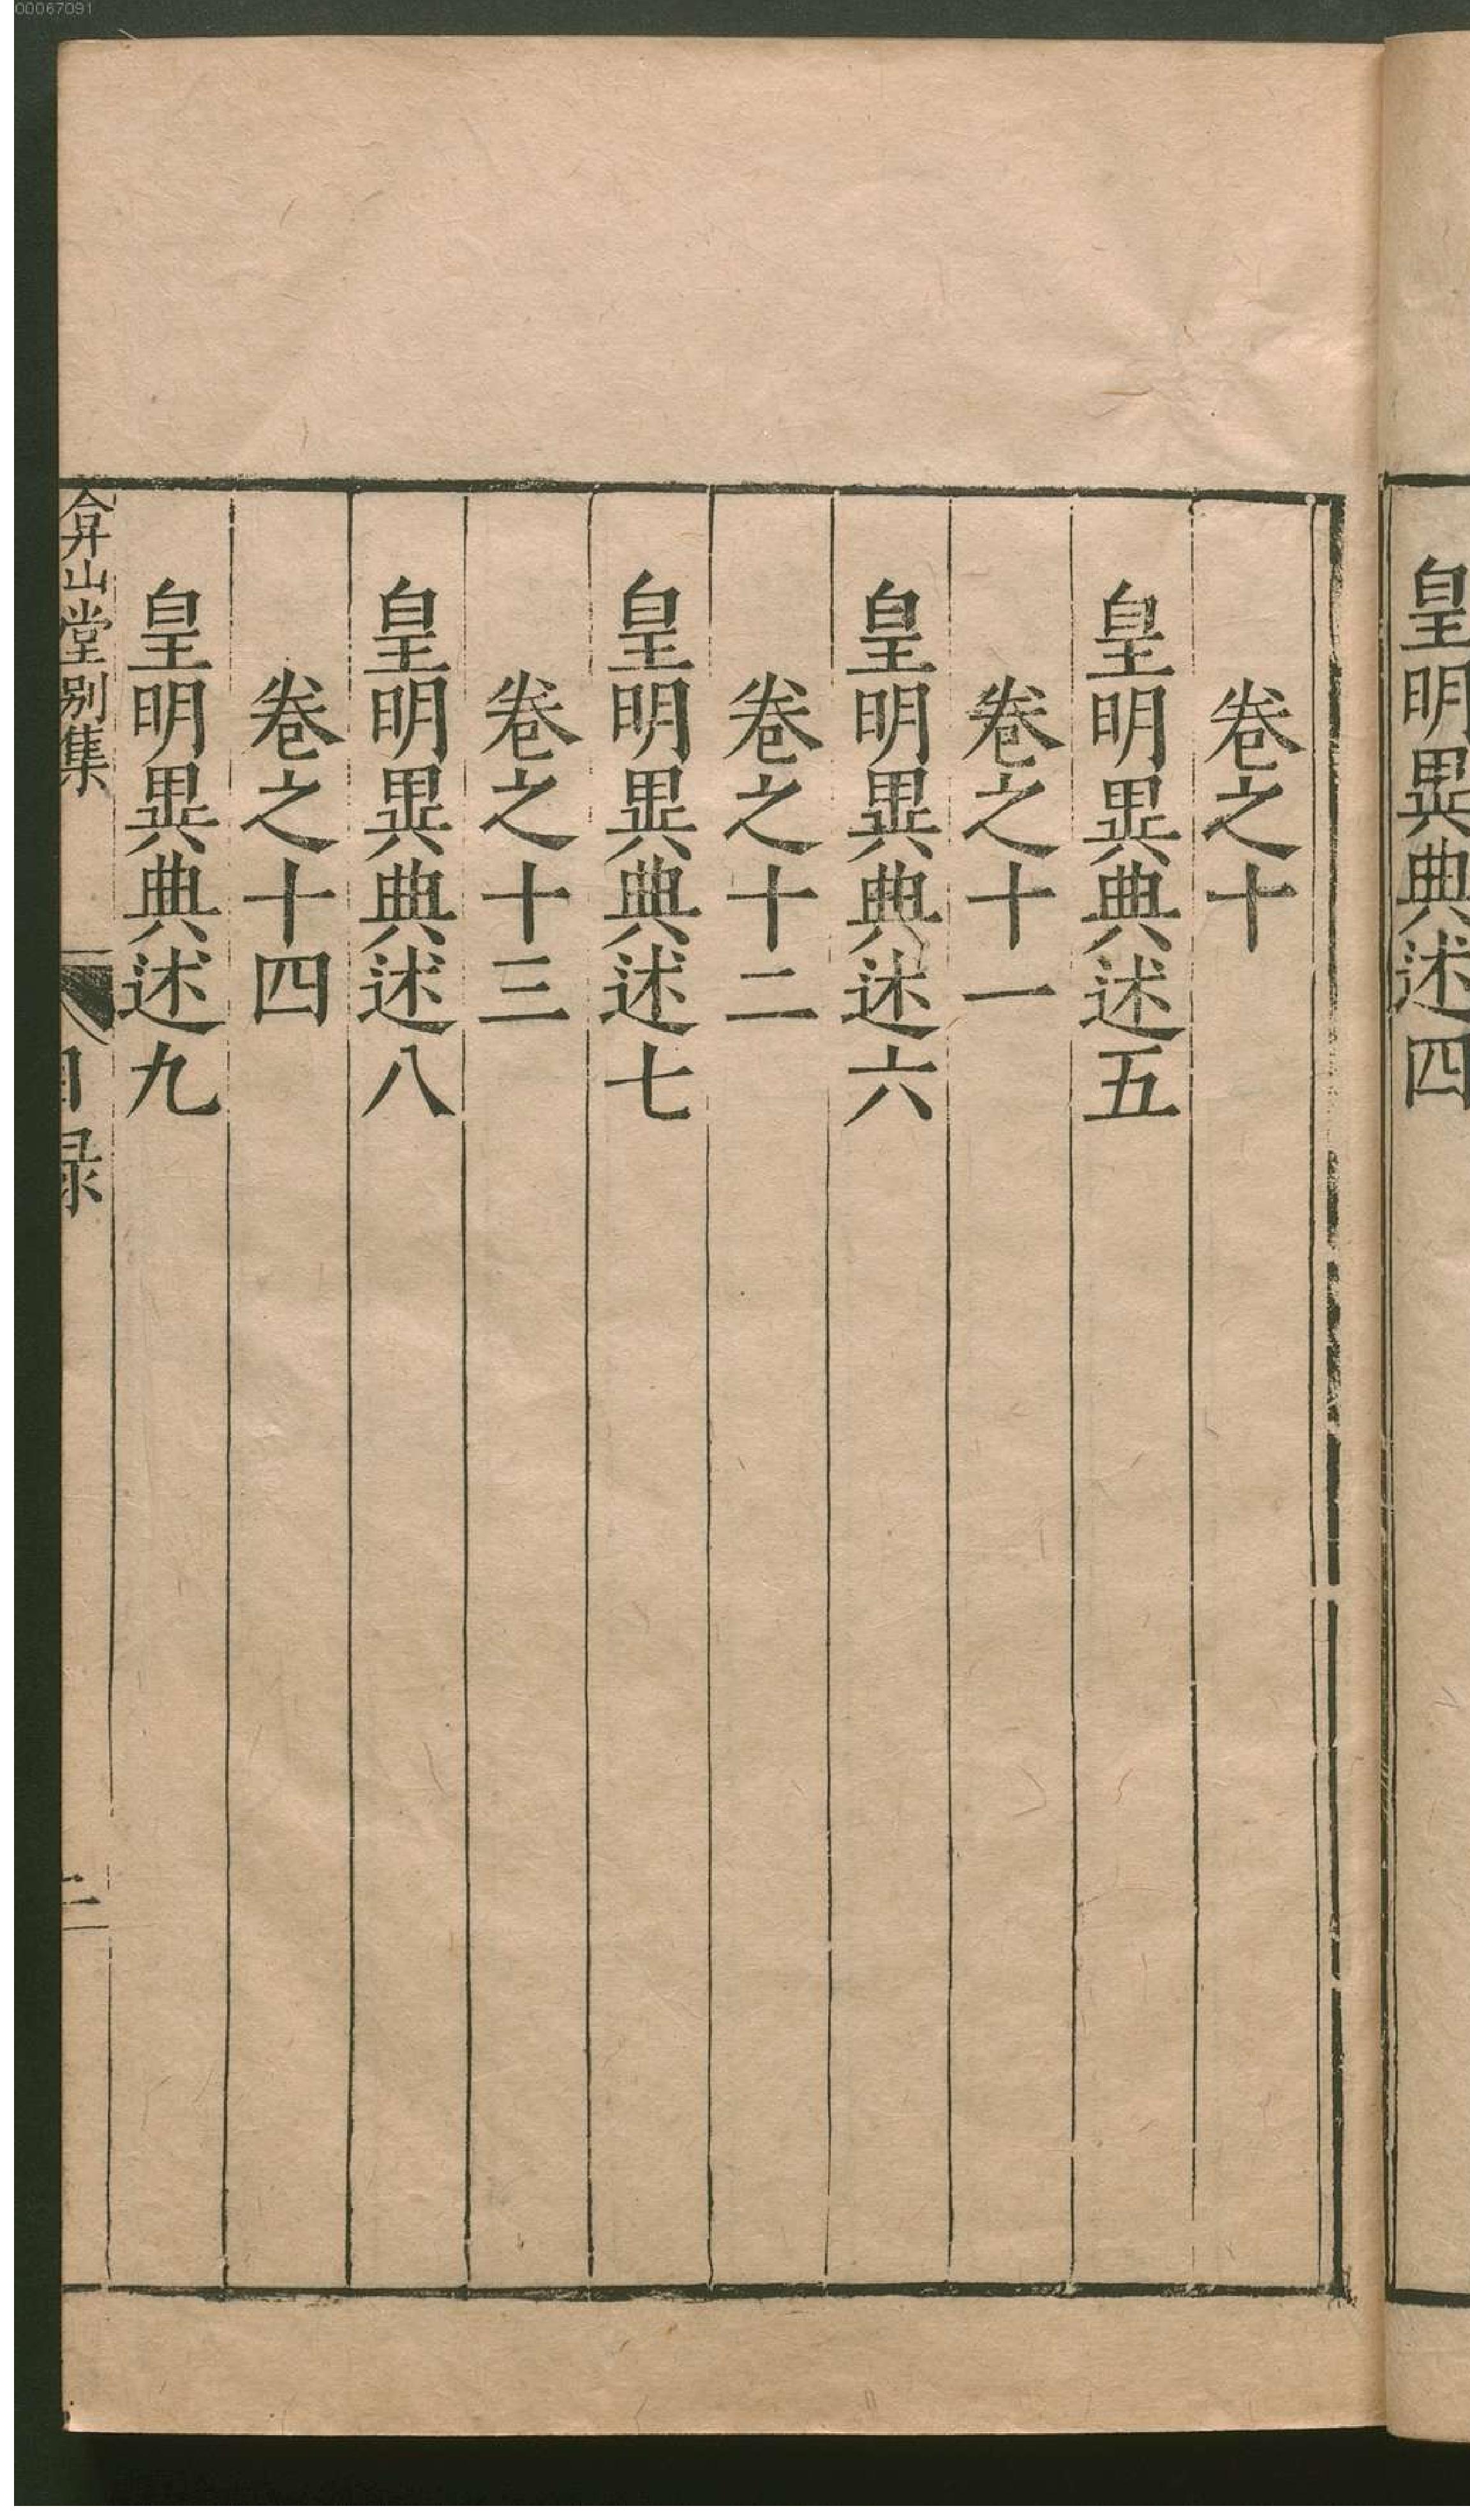 00067091
皇明異典述四
卷之十
皇明異典述五
卷之十一
皇明異典述六
卷之十二
皇明異典述七
卷之十三
皇明異典述八
卷之十四
皇明異典述九
弇山堂别集
目録
二